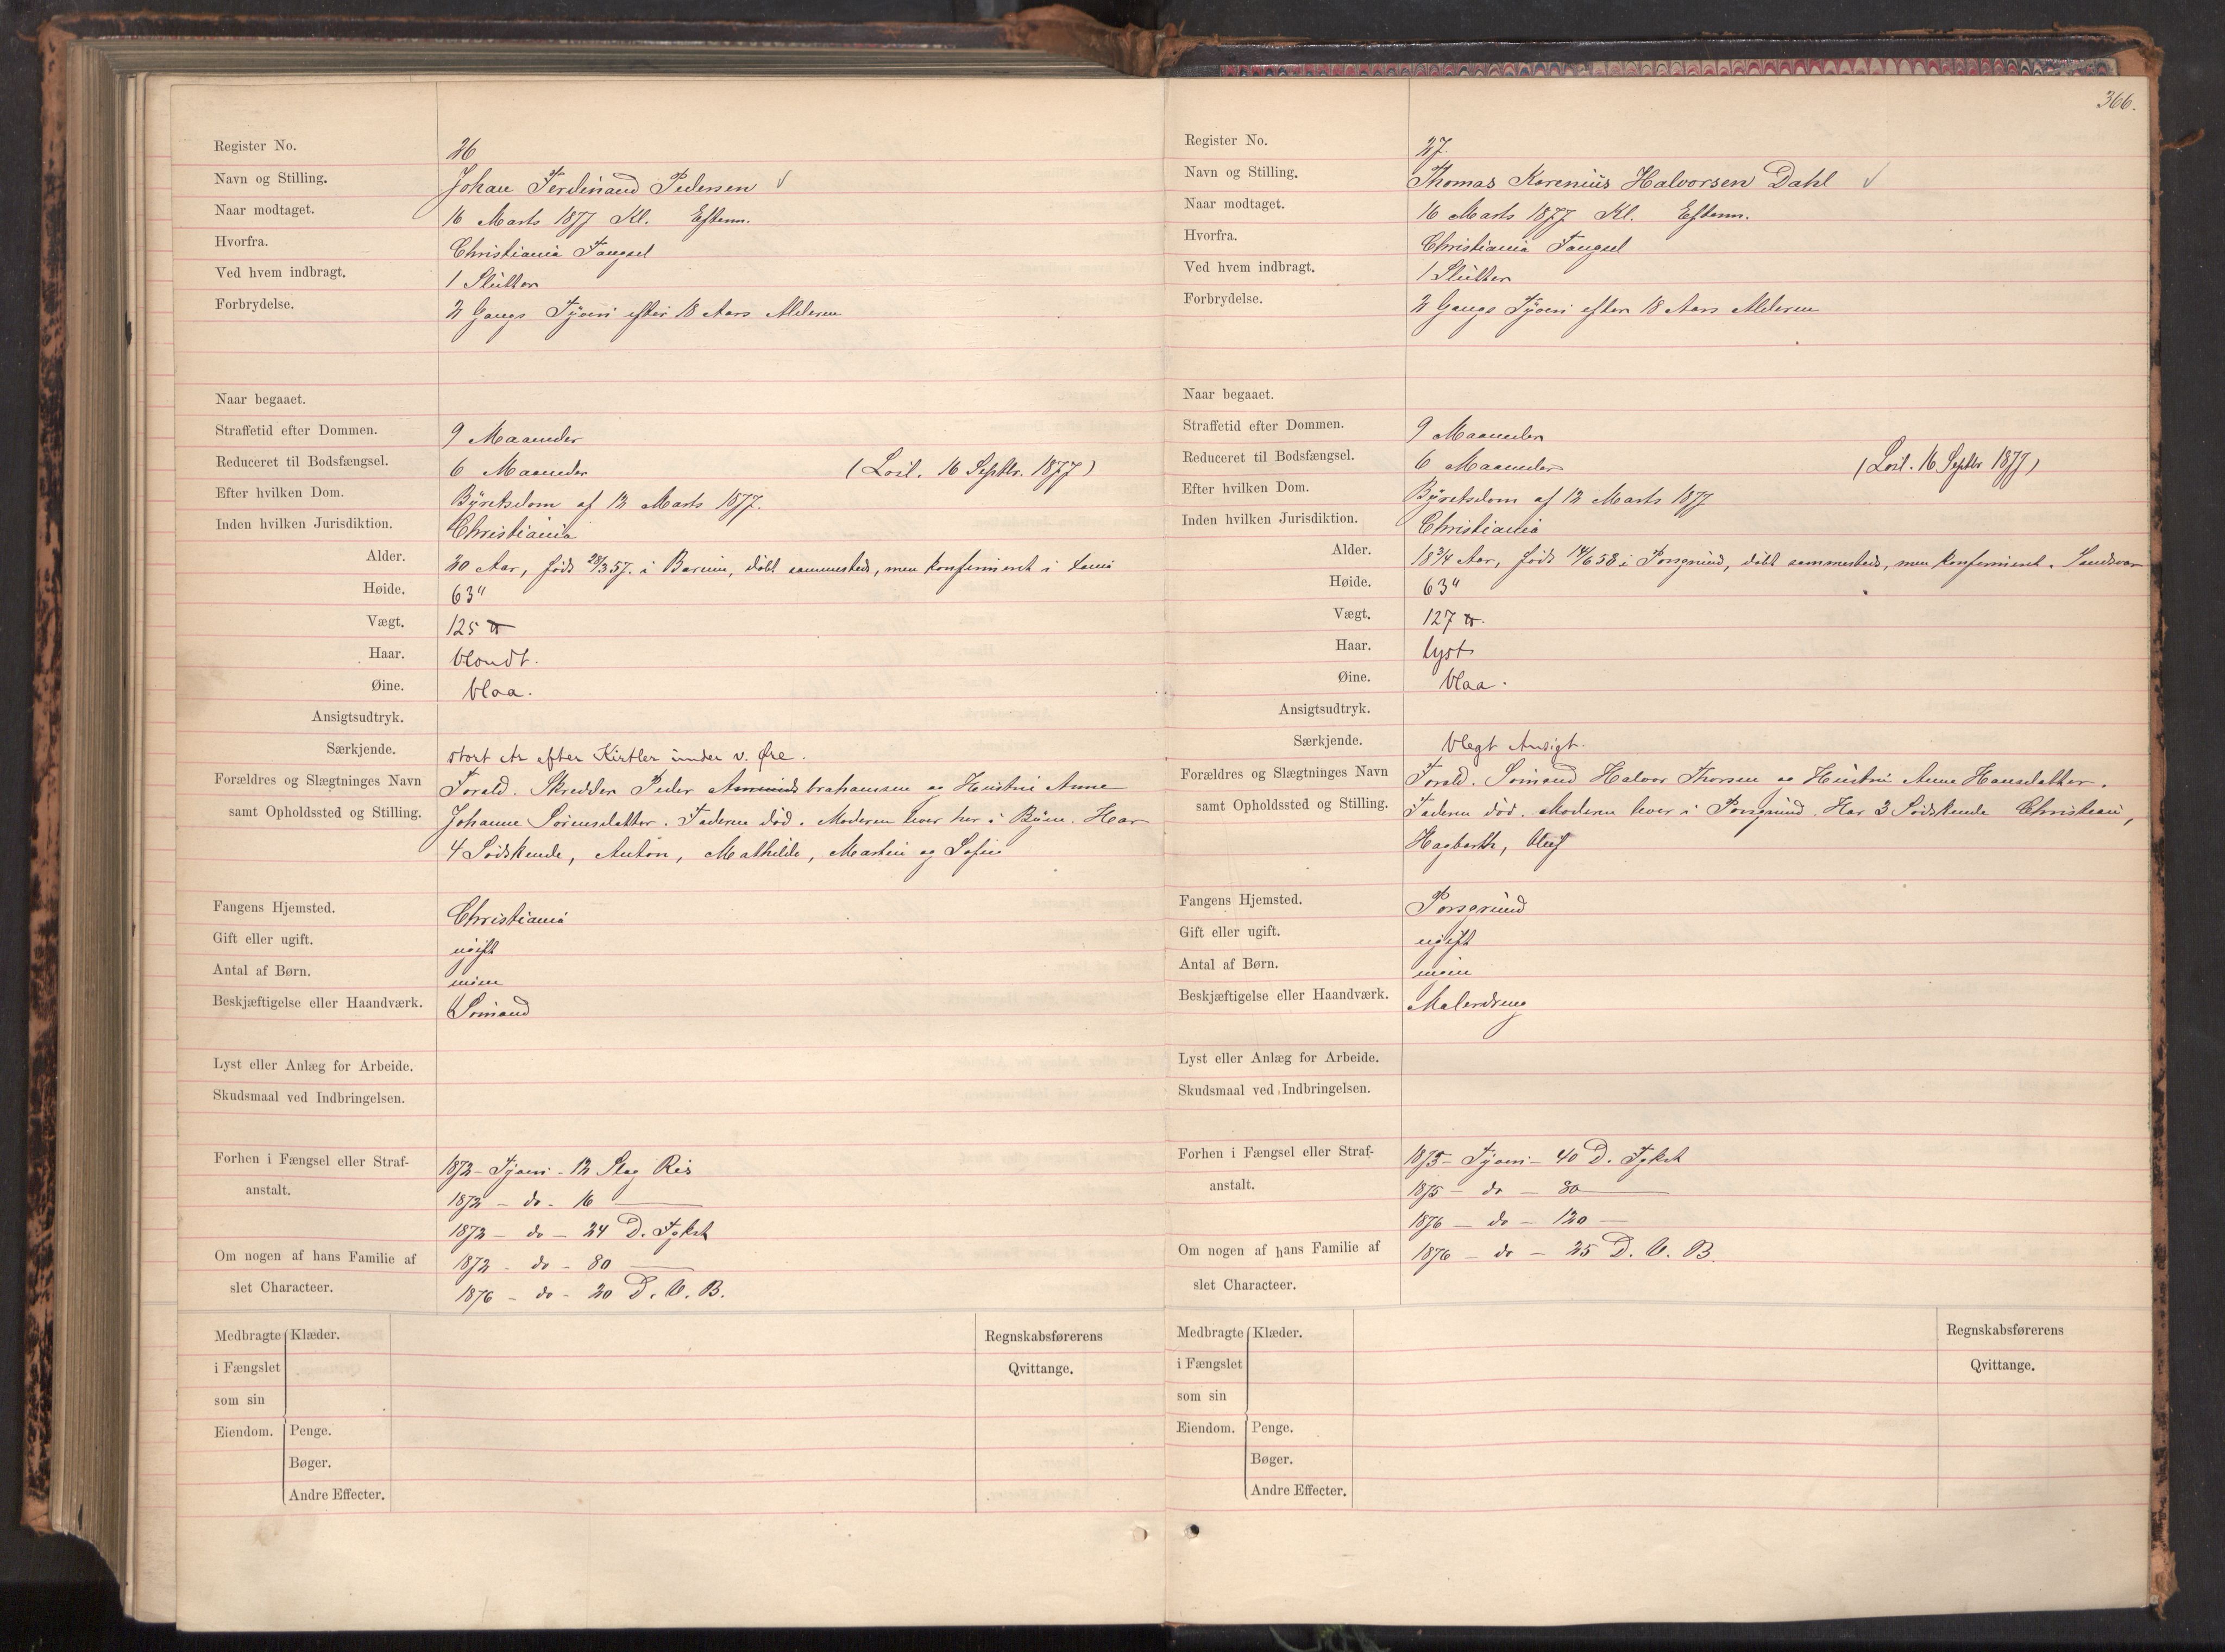 Register No. 26
Navn og Stilling. Johan Ferdinand Pedersen
Naar modtaget. 16 Marts 1877 Kl. Efterm.
Hvorfra. Christiania Fængsel
Ved hvem indbragt. 1 Slutter
Forbrydelse. 2 Gange Tyveri efter 18 Aars Alderen
Naar begaaet.
Straffetid efter Dommen. 9 Maaneder
Reduceret til Bodsfængsel. 6 Maaneder (Løsl. 16 Septbr. 1877)
Efter hvilken Dom. Byretsdom af 12 Marts 1877.
Inden hvilken Jurisdiktion. Christiania
Alder. 20 Aar, født 28/3 57. i Bærum, døbt sammesteds, men konfirmeret i
Høide. 63"
Vægt. 125 ℔
Haar. blondt.
Øine. blaa.
Ansigtsudtryk.
Særkjende. stort Ar efter Kirtler under v. Øre.
Forældres og Slægtninges Navn Foræld. Skrædder Peder og Hustru Anne
samt Opholdssted og Stilling. Johanne Sørensdatter. Faderen død. Moderen lever her i Byen. Har
4 Sødskende, Anton, Mathilde, Martin og Sofie
Fangens Hjemsted. Christiania
Gift eller ugift. ugift
Antal af Børn. ingen
Beskjæftigelse eller Haandværk. Sømand
Lyst eller Anlæg for Arbeide.
Skudsmaal ved Indbringelsen.
Forhen i Fængsel eller Straf- 1872 - Tyveri - 12 Slag Ris
anstalt. 1872 - do - 16 —
1872 - do - 24 D. Tgkst
Om nogen af hans Familie af 1872 - do - 80 —
slet Characteer. 1876 - do - 20 D. V. B.
Medbragte Klæder. Regnskabsførerens
i Fængslet Qvittange.
som sin
Eiendom. Penge.
Bøger.
Andre Effecter.
366.
Register No. 27.
Navn og Stilling. Thomas Karenius Halvorsen Dahl
Naar modtaget. 16 Marts 1877 Kl. Efterm.
Hvorfra. Christiania Fængsel
Ved hvem indbragt. 1 Slutter
Forbrydelse. 2 Gange Tyveri efter 18 Aars Alderen
Naar begaaet.
Straffetid efter Dommen. 9 Maaneder
Reduceret til Bodsfængsel. 6 Maaneder (Løsl. 16 Septbr 1877)
Efter hvilken Dom. Byretsdom af 12 Marts 1877
Inden hvilken Jurisdiktion. Christiania
Alder. 18 3/4 Aar, født 14/6 58 i Porsgrund, døbt sammesteds, men konfirmeret. Sandsvær
Høide. 63"
Vægt. 127 ℔.
Haar. lyst
Øine. blaa.
Ansigtsudtryk.
Særkjende. blegt Ansigt.
Forældres og Slægtninges Navn Foræld. Sømand Halvor Thorsen og Hustru Anne Hansdatter.
samt Opholdssted og Stilling. Faderen død. Moderen lever i Porsgrund. Har 3 Sødskende Christian,
Hagbarth, Oluf
Fangens Hjemsted. Porsgrund
Gift eller ugift. ugift
Antal af Børn. ingen
Beskjæftigelse eller Haandværk. Malerdreng
Lyst eller Anlæg for Arbeide.
Skudsmaal ved Indbringelsen.
Forhen i Fængsel eller Straf- 1875 - Tyveri - 40 D. Tgkst
anstalt. 1875 - do - 80 —
1876 - do - 120 —
Om nogen af hans Familie af 1876 - do - 25 D. V. B.
slet Characteer.
Medbragte Klæder. Regnskabsførerens
i Fængslet Qvittange.
som sin
Eiendom. Penge.
Bøger.
Andre Effecter.